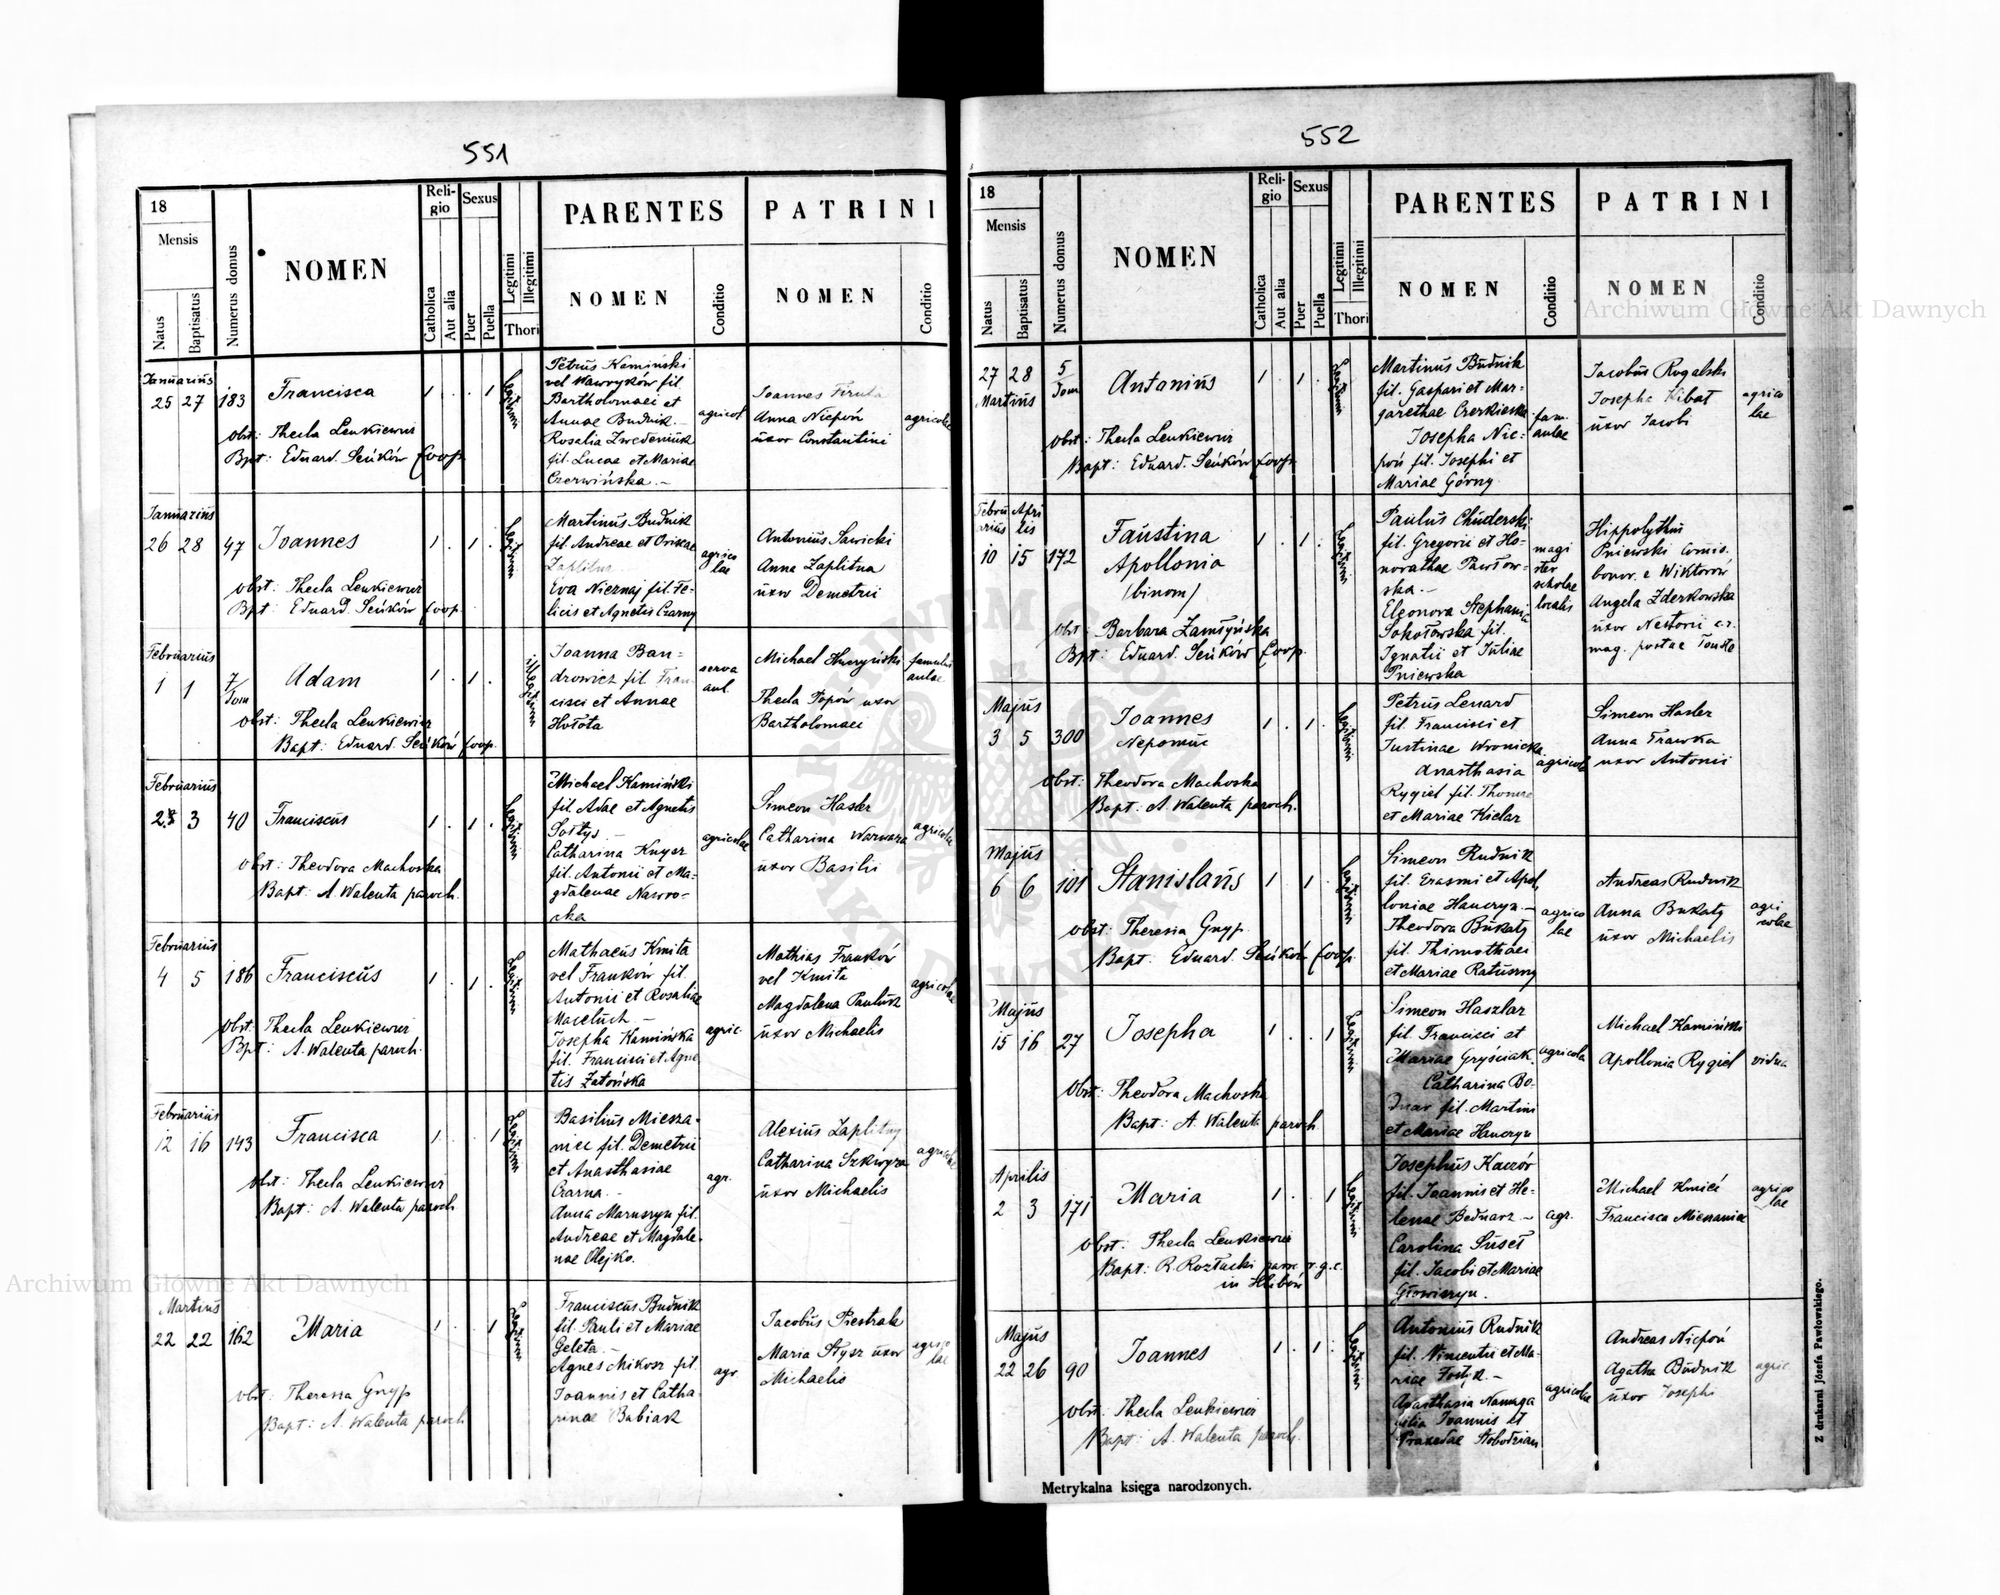 551
18
Mensis
Natus
Baptisatus
Numerus domus
NOMEN
Reli-
gio
Catholica
Aut alia
Sexus
Puer
Puella
Legitimi
Illegitimi
Thori
PARENTES
NOMEN
Conditio
PATRINI
NOMEN
Conditio
Januarius
25 27 183 Francisca 1 . . 1
Obst: Thecla Lenkiewicz
Bpt: Eduard. Seńków Coop.
Petrus Kamiński
vel Wawryków fil.
Bartholomaei et
Annae Budnik. -
Rosalia Zwedeniuk
fil. Lucae et Mariae
Czerwińska. -
agricol
Joannes Firuta
Anna Niepoń
uxor Constantini
agricolae
Januarius
26 28 47 Joannes 1 . 1 .
Obst: Thecla Lenkiewicz
Bpt: Eduard. Seńków Coop.
Martinus Budnik
fil. Andreae et
Eva Nieznaj fil. Fe-
licis et Agnetis Czarny
agrico
lae
Antonius Sawicki
Anna Zaplitna
uxor Demetrii
Februarius
1 1 7/Tom Adam 1 . 1 .
Obst: Thecla Lenkiewicz
Bapt: Eduard. Seńków Coop.
Joanna Ban-
drowicz fil. Fran-
cisci et Annae
Hołota
serva
aul.
Michael Huczyński
Thecla Popów uxor
Bartholomaei
famulus
aulae
Februarius
3 40 Franciscus 1 . 1 .
Obst: Theodora Machoska
Bapt: A. Walenta paroch.
Michael Kamiński
fil. Adae et Agnetis
Sołtys. -
Catharina Knysz
fil. Antonii et Ma-
gdalenae Nawro-
cka
agricolae
Simeon Hasler
Catharina Warwara
uxor Basilii
agricolae
Februarius
4 5 186 Franciscus 1 . 1 .
Obst: Thecla Lenkiewicz
Bpt: A. Walenta paroch.
Mathaeus Kmita
vel Franków fil.
Antonii et Rosaliae
Maceluch. -
Josepha Kamińska
fil. Francisci et Agne
tis Zatońska
agric.
Mathias Franków
vel Kmita
Magdalena Pauluk
uxor Michaelis
agricolae
Februarius
12 16 143 Francisca 1 . . 1
Obst: Thecla Lenkiewicz
Bapt: A. Walenta paroch.
Basilius Miesza-
niec fil. Demetrii
et Anasthasiae
Czarna. -
Anna Maruszyn fil.
Andreae et Magdale-
nae Olejko.
agr.
Alexius Zaplitny
Catharina Szkwyra
uxor Michaelis
agricolae
Martius
22 22 162 Maria 1 . . 1
Obst: Theresa Gnyp
Bapt: A. Walenta paroch
Franciscus Budnik
fil. Pauli et Mariae
Geleta. -
Agnes Mikosz fil.
Joannis et Catha-
rinae Babiak
agr.
Jacobus Piestrak
Maria Stysz uxor
Michaelis
agrico
lae
552
18
Mensis
Natus
Baptisatus
Numerus domus
NOMEN
Reli-
gio
Catholica
Aut alia
Sexus
Puer
Puella
Legitimi
Illegitimi
Thori
PARENTES
NOMEN
Conditio
PATRINI
NOMEN
Conditio
27 28 5/Tom Antonius 1 . 1 .
Martius
Obst: Thecla Lenkiewicz
Bapt: Eduard. Seńków Coop.
Martinus Budnik
fil. Gaspari et Mar-
garethae Czerkieska
Josepha Nie-
poń fil. Josephi et
Mariae Górny.
fam.
aulae
Jacobus Rogalski
Josepha Kibat
uxor Jacobi
agrico
lae
Febru
arius
Apri
lis
10 15 172 Faustina 1 . 1 .
Apollonia
/binom/
Obst: Barbara Zamłyńska
Bpt: Eduard. Seńków Coop.
Paulus Chuderski
fil. Gregorii et Ho-
norathae Pawłow-
ska. -
Eleonora Stephania
Sokołowska fil.
Ignatii et Juliae
Pniewska
magi
ster
scholae
localis
Hippolythus
Pniewski Comis.
bonor. e Wiktorów
Angela Zderkowska
uxor Nestorii c.r.
mag. postae Touste
Majus
3 5 300 Joannes 1 . 1 .
Nepomuc
Obst: Theodora Machoska
Bapt: A. Walenta paroch.
Petrus Lenard
fil. Francisci et
Justinae Wronicka
Anasthasia
Rygiel fil. Thomae
et Mariae Kielar
agricola
Simeon Hasler
Anna Trawka
uxor Antonii
Majus
6 6 101 Stanislaus 1 . 1 .
Obst: Theresia Gnyp.
Bapt. Eduard. Seńków Coop.
Simeon Rudnik
fil. Erasmi et Apol
loniae Hanczyn. -
Theodora Bukaty
fil. Thimothaei
et Mariae Ratuszny
agrico
lae
Andreas Rudnik
Anna Bukaty
uxor Michaelis
agri
colae
Majus
15 16 27 Josepha 1 . . 1
Obst: Theodora Machoska
Bapt: A. Walenta paroch.
Simeon Haszlar
fil. Francisci et
Mariae Gryściak.
Catharina Bo-
dnar fil. Martini
et Mariae Hanczyn
agricola
Michael Kamiński
Apollonia Rygiel
vidua
Aprilis
2 3 171 Maria 1 . . 1
Obst: Thecla Lenkiewicz
Bapt: R. Roztacki paroch r.g.c.
in Hlibów
Josephus Kaczór
fil. Joannis et He-
lenae Bednarz -
Carolina Suseł
fil. Jacobi et Mariae
Głowiszyn.
agr.
Michael Kmieć
Francisca Mieszaniec
agrico
lae
Majus
22 26 90 Joannes 1 . 1 .
Obst: Thecla Lenkiewicz
Bapt: A. Walenta paroch.
Antonius Rudnik
fil. Vincentii et Ma-
riae Fostyk -
Anasthasia Nanaga
filia Joannis et
Praxedae Słobodzian
agricolae
Andreas Niepoń
Agatha Budnik
uxor Josephi
agric.
Metrykalna księga narodzonych.
Z drukarni Józefa Pawłowskiego.
Archiwum Główne Akt Dawnych
Archiwum Główne Akt Dawnych